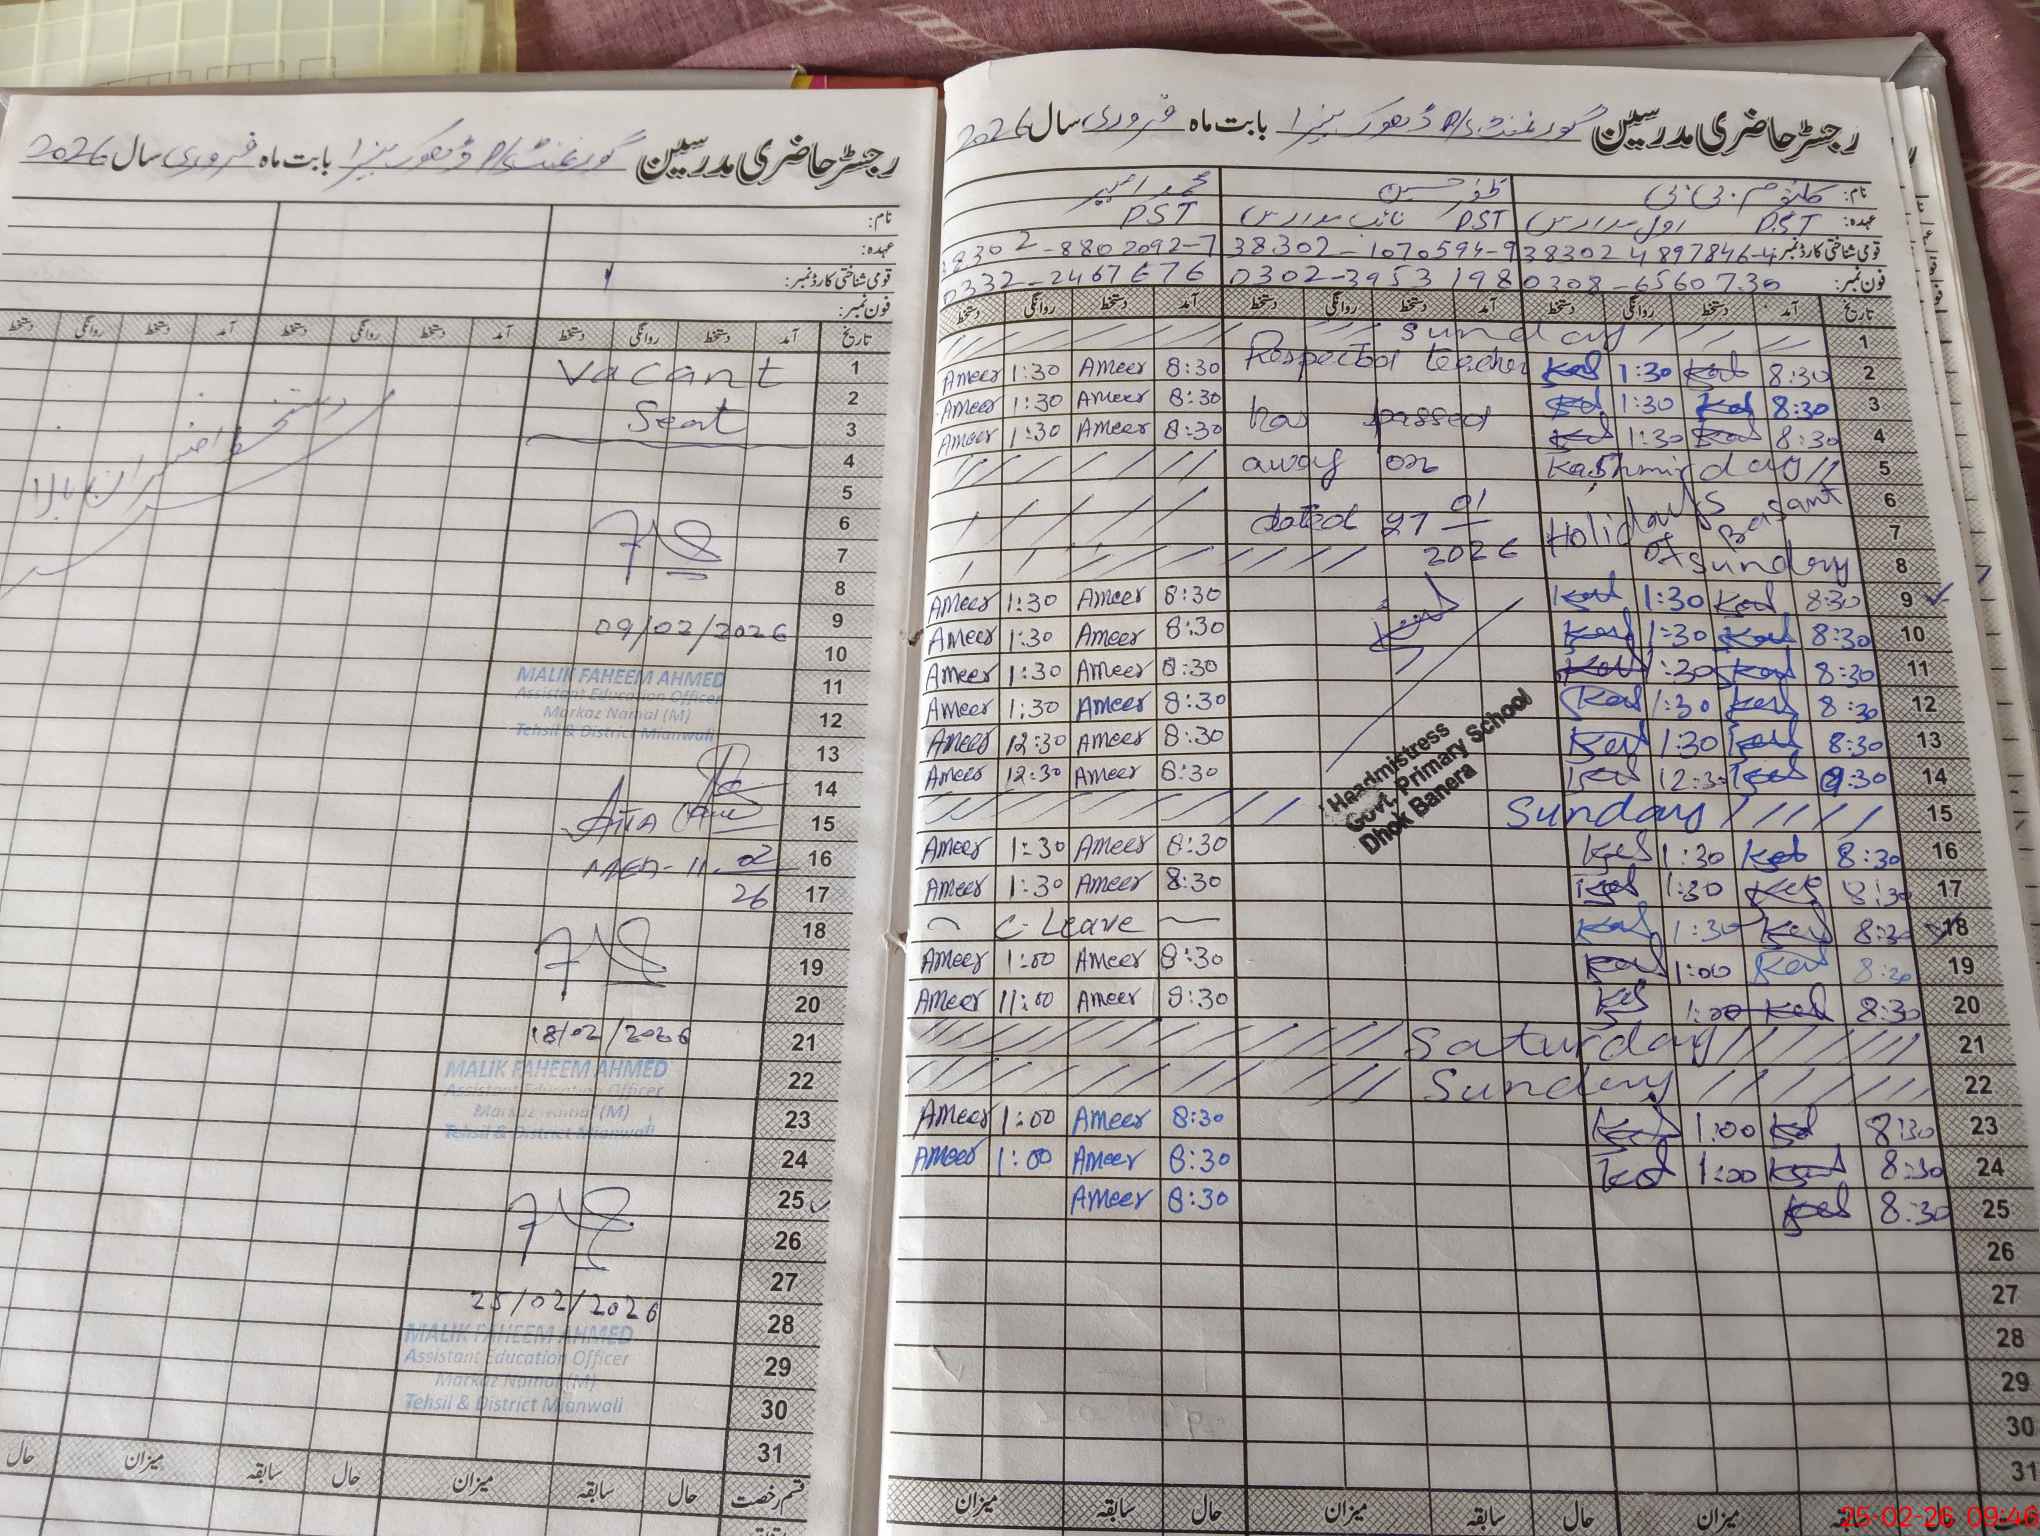 رجسٹر حاضری مدرسین گورنمنٹ P/S ڈھوک بابت ماہ فروری سال 2026
نام:
عہدہ:
قومی شناختی کارڈ نمبر:
فون نمبر:
تاریخ آمد دستخط روانگی دستخط آمد دستخط روانگی دستخط
1 Vacant
2
3 Seat
دستخط افسران بالا
4
5
6
7
8
9 09/02/2026
10
11 MALIK FAHEEM AHMED
Assistant Education Officer
12 Markaz Namal (M)
Tehsil & District Mianwali
13
14
15
16 11-02
17 26
18
19
20
21 18/02/2026
22 MALIK FAHEEM AHMED
Assistant Education Officer
Markaz Namal (M)
23 Tehsil & District Mianwali
24
25
26
27
28 25/02/2026
MALIK FAHEEM AHMED
29 Assistant Education Officer
Markaz Namal (M)
30 Tehsil & District Mianwali
31
قسم رخصت حال سابقہ میزان حال سابقہ میزان حال
رجسٹر حاضری مدرسین گورنمنٹ P/S ڈھوک بابت ماہ فروری سال 2026
نام: کلثوم بی بی ظفر حسین محمد امیر
عہدہ: PST اول مدرس PST نائب مدرس PST
قومی شناختی کارڈ نمبر: 38302 4897846-4 38302-1070594-9 38302-8802092-7
فون نمبر: 0308-6560730 0302-3953198 0332-2467676
تاریخ آمد دستخط روانگی دستخط آمد دستخط روانگی دستخط آمد دستخط روانگی دستخط
1 Sunday
Ameer 1:30 Ameer 8:30 Respected teacher 1:30 8:30 2
Ameer 1:30 Ameer 8:30 has passed 1:30 8:30 3
Ameer 1:30 Ameer 8:30 1:30 8:30 4
away on Kashmir day 5
dated 27 01 Holidays 6
2026 of Basant 7
Sunday 8
Ameer 1:30 Ameer 8:30 1:30 8:30 9
Ameer 1:30 Ameer 8:30 1:30 8:30 10
Ameer 1:30 Ameer 8:30 1:30 8:30 11
Ameer 1:30 Ameer 8:30 1:30 8:30 12
Ameer 12:30 Ameer 8:30 1:30 8:30 13
Ameer 12:30 Ameer 8:30 12:30 8:30 14
Headmistress
Govt. Primary School
Dhok Banera
Sunday 15
Ameer 1:30 Ameer 8:30 1:30 8:30 16
Ameer 1:30 Ameer 8:30 1:30 8:30 17
C-Leave 1:30 8:30 18
Ameer 1:00 Ameer 8:30 1:00 8:30 19
Ameer 11:00 Ameer 8:30 1:00 8:30 20
Saturday 21
Sunday 22
Ameer 1:00 Ameer 8:30 1:00 8:30 23
Ameer 1:00 Ameer 8:30 1:00 8:30 24
Ameer 8:30 8:30 25
26
27
28
29
30
31
میزان سابقہ حال میزان سابقہ حال میزان
25-02-26 09:46